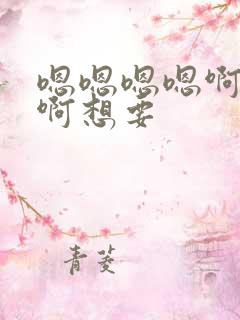 嗯嗯嗯嗯啊
啊想要
青菱